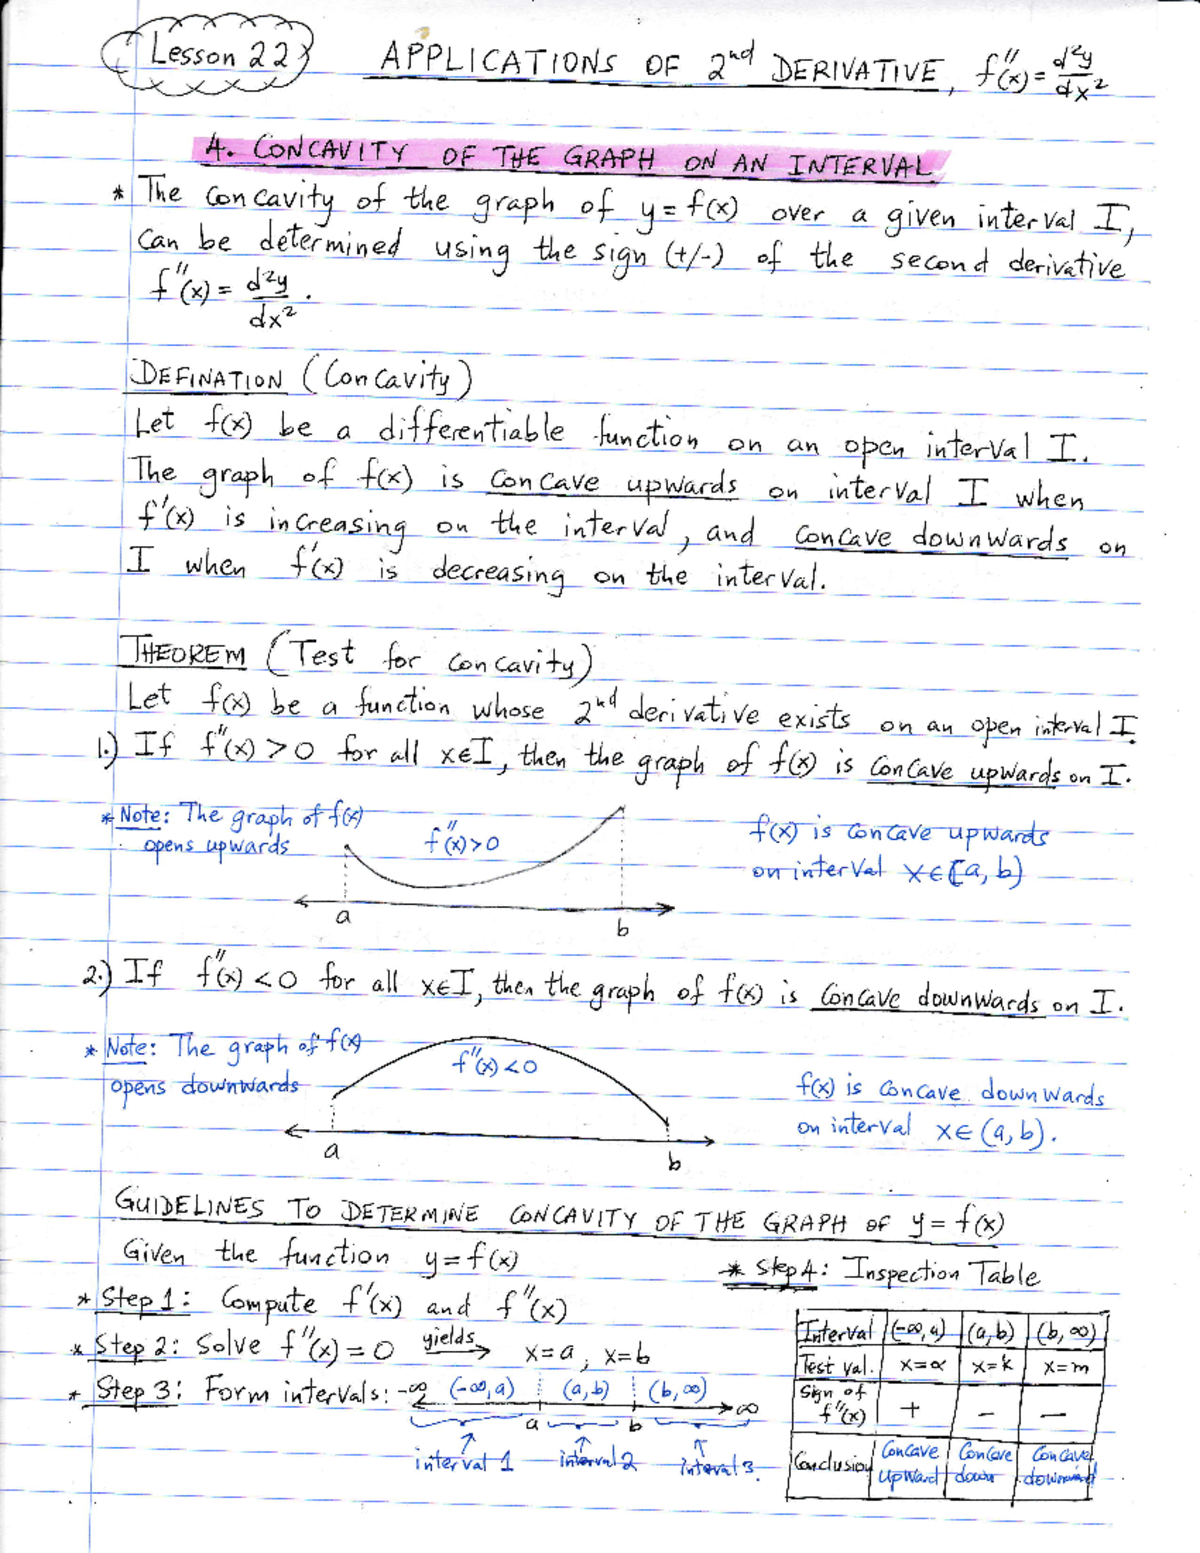 Lesson 22
APPLICATIONS OF 2nd DERIVATIVE, f''(x) = d²y/dx²
4. CONCAVITY OF THE GRAPH ON AN INTERVAL
* The concavity of the graph of y = f(x) over a given interval I,
can be determined using the sign (+/-) of the second derivative
f''(x) = d²y/dx².
DEFINATION (Concavity)
Let f(x) be a differentiable function on an open interval I.
The graph of f(x) is concave upwards on interval I when
f'(x) is increasing on the interval, and concave downwards on
I when f'(x) is decreasing on the interval.
THEOREM (Test for concavity)
Let f(x) be a function whose 2nd derivative exists on an open interval I.
1.) If f''(x) > 0 for all x∈I, then the graph of f(x) is concave upwards on I.
* Note: The graph of f(x)
opens upwards
f''(x)>0
a
b
f(x) is concave upwards
on interval x∈(a,b)
2.) If f''(x) < 0 for all x∈I, then the graph of f(x) is concave downwards on I.
* Note: The graph of f(x)
opens downwards
f''(x) <0
a
b
f(x) is concave downwards
on interval x∈(a,b).
GUIDELINES TO DETERMINE CONCAVITY OF THE GRAPH OF y = f(x)
Given the function y = f(x)
* Step 1: Compute f'(x) and f''(x)
* Step 2: Solve f''(x) = 0 yields x=a, x=b
* Step 3: Form intervals: -∞ (-∞,a) (a,b) (b,∞) ∞
a b
interval 1 interval 2 interval 3.
* Step 4: Inspection Table
Interval (-∞,a) (a,b) (b,∞)
Test val. x=α x=k x=m
Sign of
f''(x) + - -
Conclusion Concave upward Concave down Concave downward